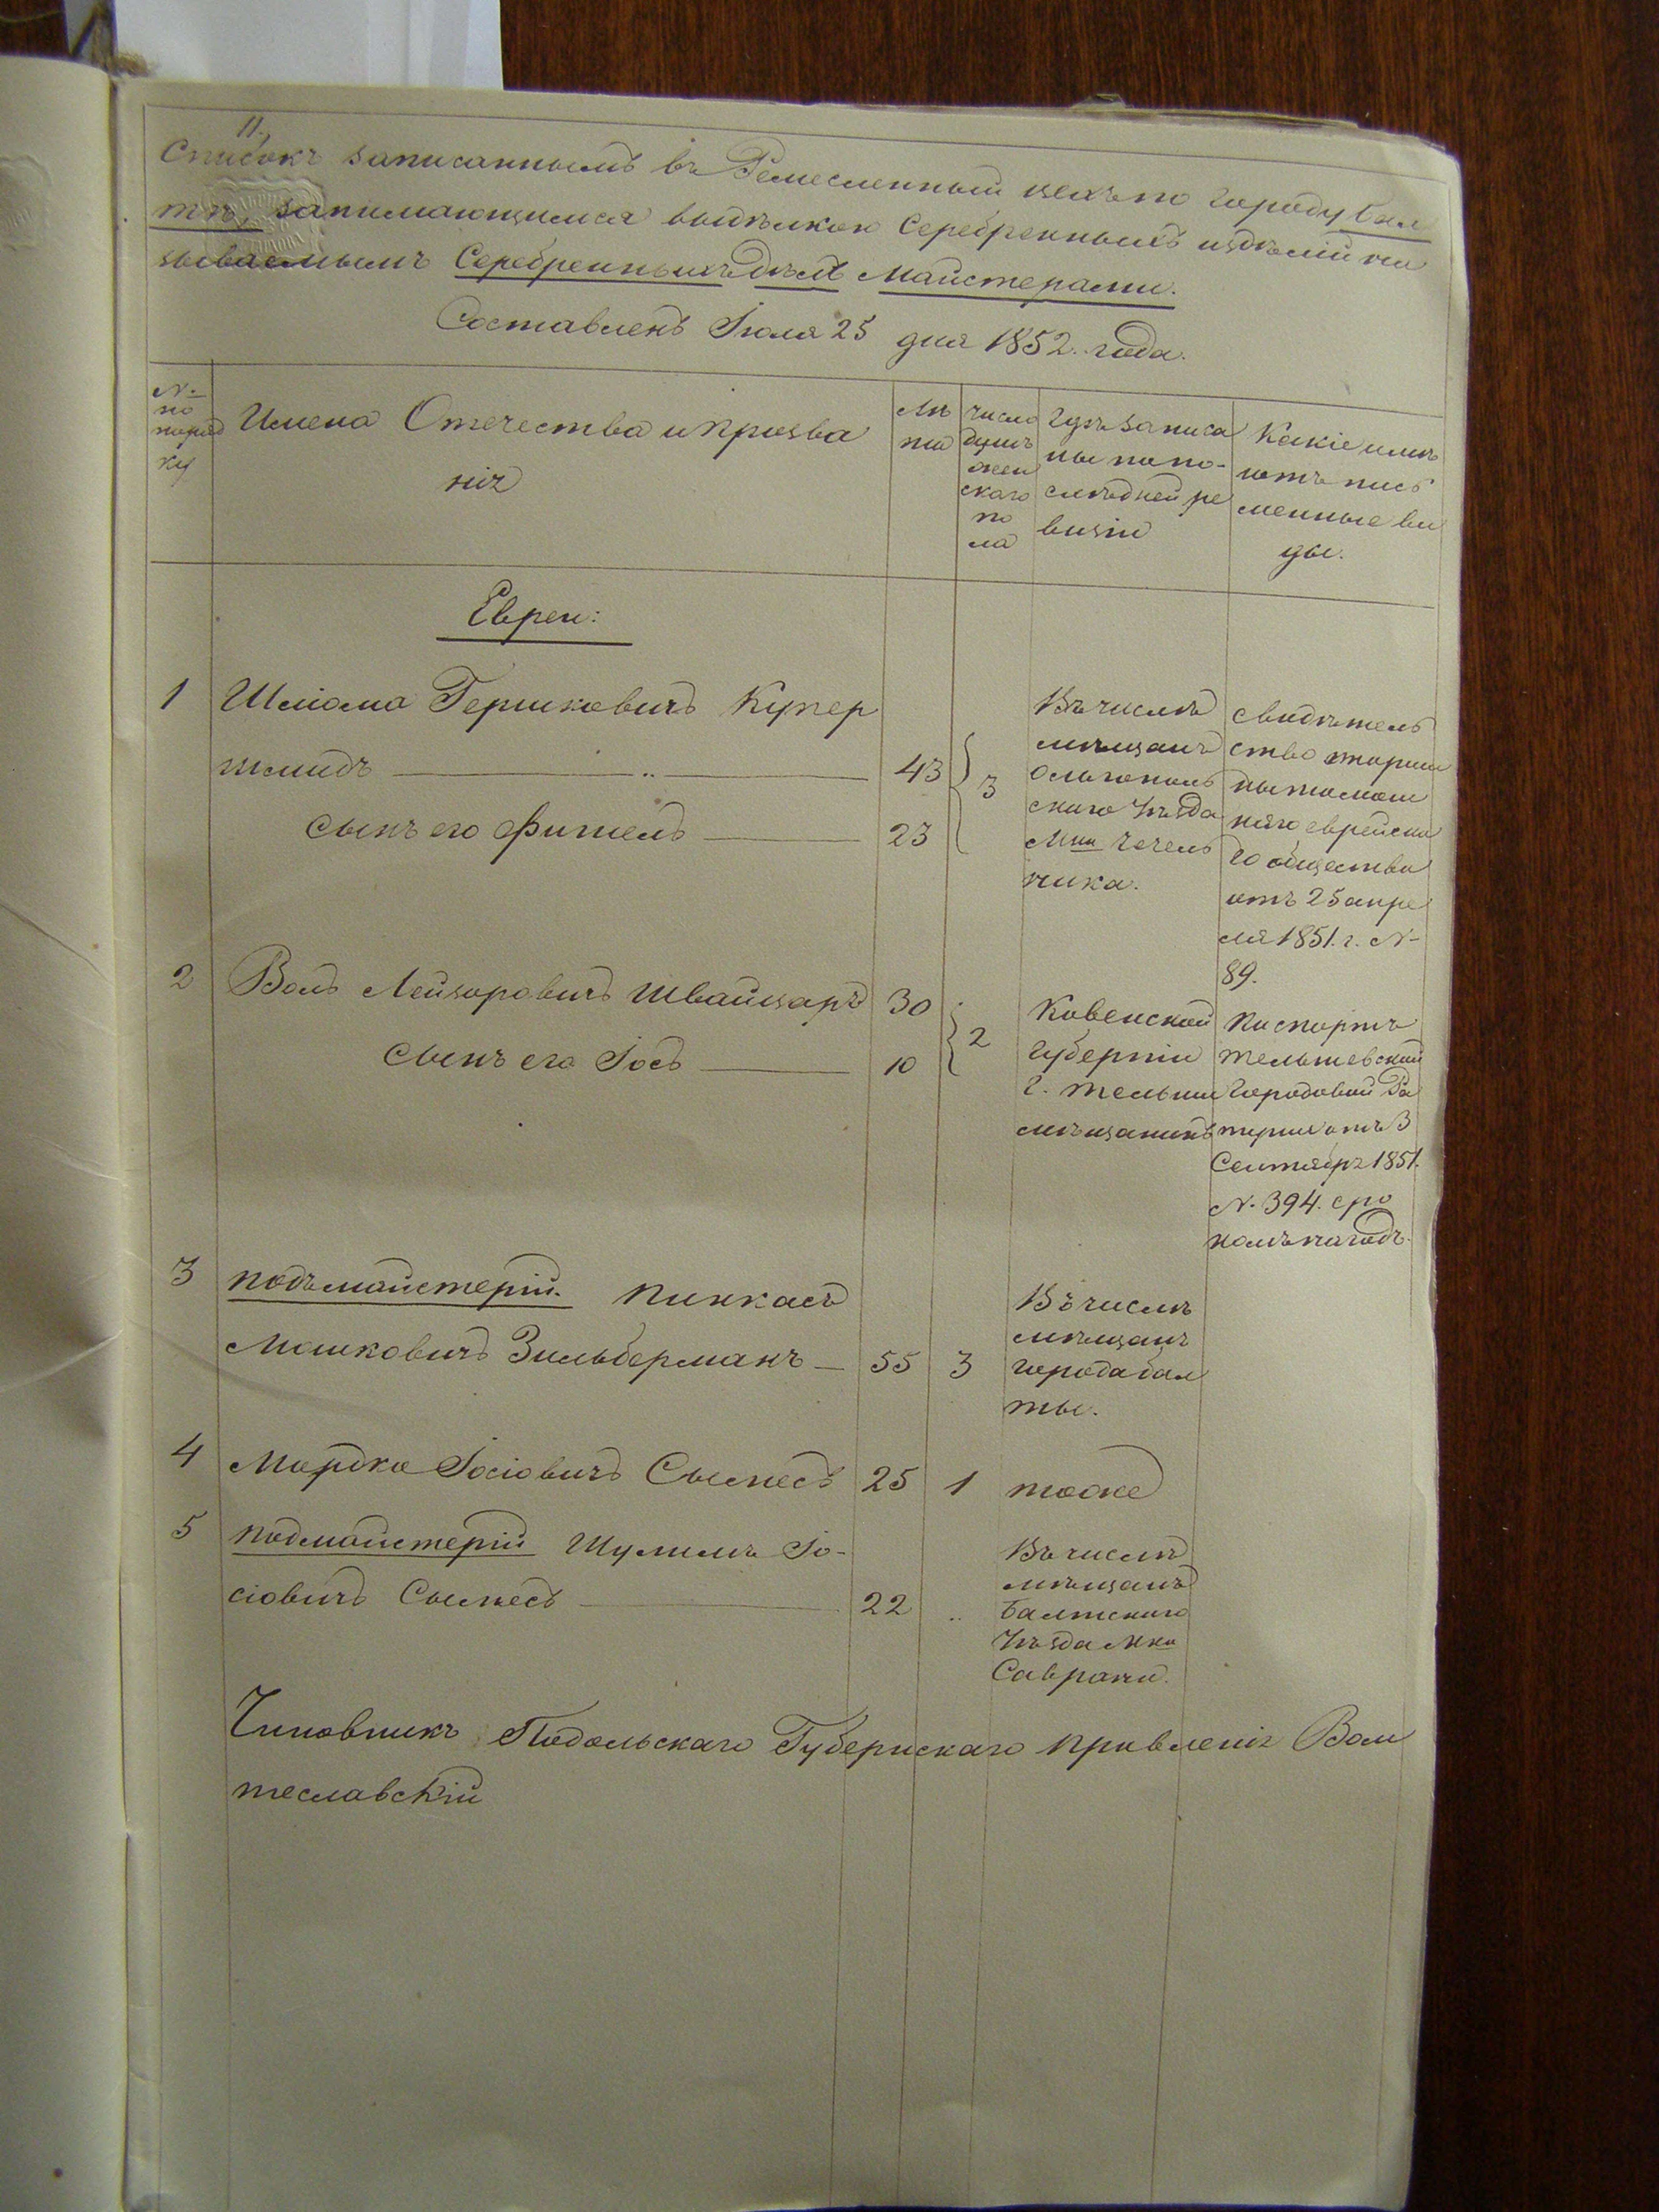 11.
Списокъ записаннымъ въ Ремесленный цехъ по городу Бал
тѣ, занимающимся выдѣлкою Серебренныхъ издѣлій на
зываемымъ Серебренныхъ дѣлъ Майстерами.
Составленъ Іюля 25 дня 1852. года.
№ по поряд ку
Имена Отечества и Прозва
нія
Лѣ та
число душъ жен скаго по ла
Гдѣ записа
ны по по-
слѣдней ре
визіи
Какіе имѣ
ютъ пись
менные ви
ды.
Евреи:
1 Шліома Гершковичъ Купер
шмидъ 43
сынъ его Фишель 23
3
Въ числѣ
мѣщанъ
Ольгополь
скаго уѣзда
М-ка Чечель
ника.
свидѣтель
ство старши
ны тамош
няго еврейска
го общества
отъ 25 апре
ля 1851. г. №
89.
2 Вольъ Лейзоровичъ Швайцаръ 30
сынъ его Іось 10
2
Ковенской
губерніи
г. Тельши
мѣщанинъ
Паспортъ
Тельшевской
Городовой Ра
туши отъ 3
Сентября 1851.
№ 394. сро
комъ на годъ.
3 подъмайстерій. Пинкасъ
Мошковичъ Зильберманъ 55 3
Въ числѣ
мѣщанъ
города Бал
ты.
4 Мордко Іосіовичъ Сымесъ 25 1 тоже
5 подмайстерій Шулимъ Іо-
сіовичъ Сымесъ 22 "
Въ числѣ
мѣщанъ
Балтскаго
уѣзда М-ка
Саврани.
Чиновникъ Подольскаго Губернскаго Правленія Вой
теславскій